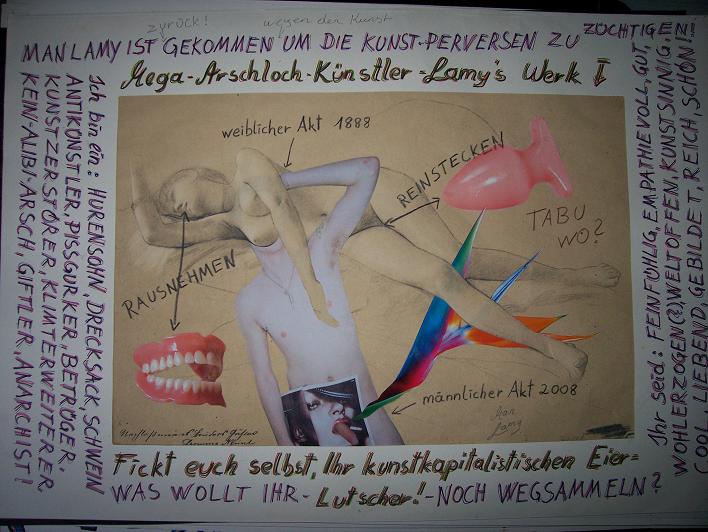 zurück! wegen der Kunst
MAN LAMY IST GEKOMMEN UM DIE KUNST-PERVERSEN ZU ZÜCHTIGEN
Mega-Arschloch-Künstler-Lamy's Werk I
Ich bin ein: HURENSOHN, DRECKSACK, SCHWEIN
ANTIKÜNSTLER, PISSGURKER, BETRÜGER,
KUNSTZERSTÖRER, KLIMTERWEITERER
KEIN-ALIBI-ARSCH, GIFTLER, ANARCHIST!
weiblicher Akt 1888
REINSTECKEN
TABU
WO?
RAUSNEHMEN
männlicher Akt 2008
Man
Lamy
Ihr seid: FEINFÜHLIG, EMPATHIEVOLL, GUT,
WOHLERZOGEN(?) WELTOFFEN, KUNSTSINNIG,
COOL, LIEBEND, GEBILDET, REICH, SCHÖN!
Fickt euch selbst, Ihr kunstkapitalistischen Eier=
WAS WOLLT IHR - Lutscher! - NOCH WEGSAMMELN?